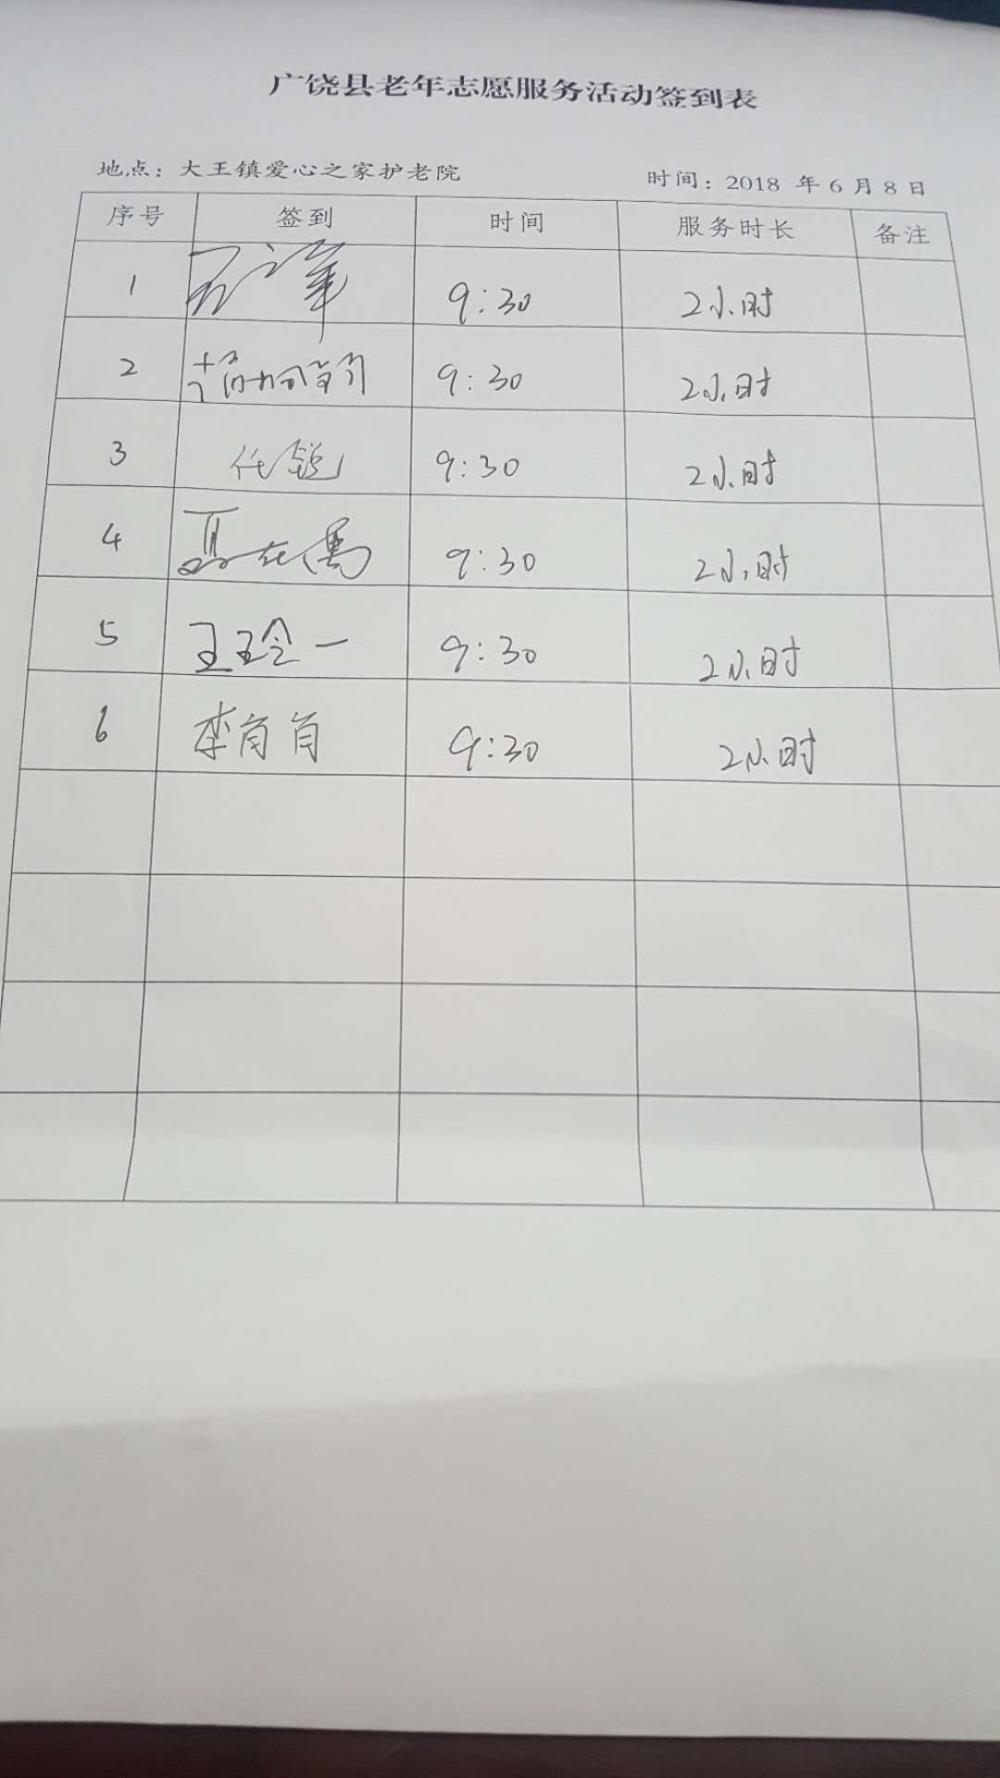 广饶县老年志愿服务活动签到表
地点：大王镇爱心之家护老院 时间：2018 年 6 月 8 日
序号 签到 时间 服务时长 备注
1 9:30 2小时
2 9:30 2小时
3 任锐 9:30 2小时
4 9:30 2小时
5 王玲一 9:30 2小时
6 李肖肖 9:30 2小时